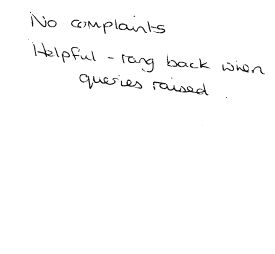 No complaints
Helpful - rang back when
queries raised.